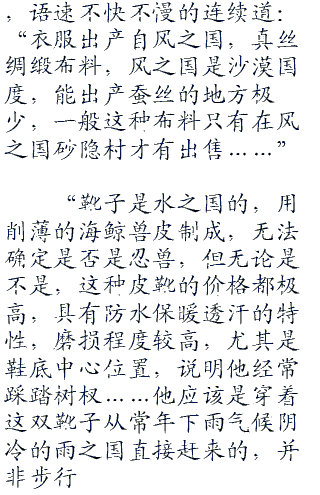 ，语速不快不慢的连续道：
“衣服出产自风之国，真丝
绸缎布料，风之国是沙漠国
度，能出产蚕丝的地方极
少，一般这种布料只有在风
之国砂隐村才有出售……”
“靴子是水之国的，用
削薄的海鲸兽皮制成，无法
确定是否是忍兽，但无论是
不是，这种皮靴的价格都极
高，具有防水保暖透汗的特
性，磨损程度较高，尤其是
鞋底中心位置，说明他经常
踩踏树杈……他应该是穿着
这双靴子从常年下雨气候阴
冷的雨之国直接赶来的，并
非步行